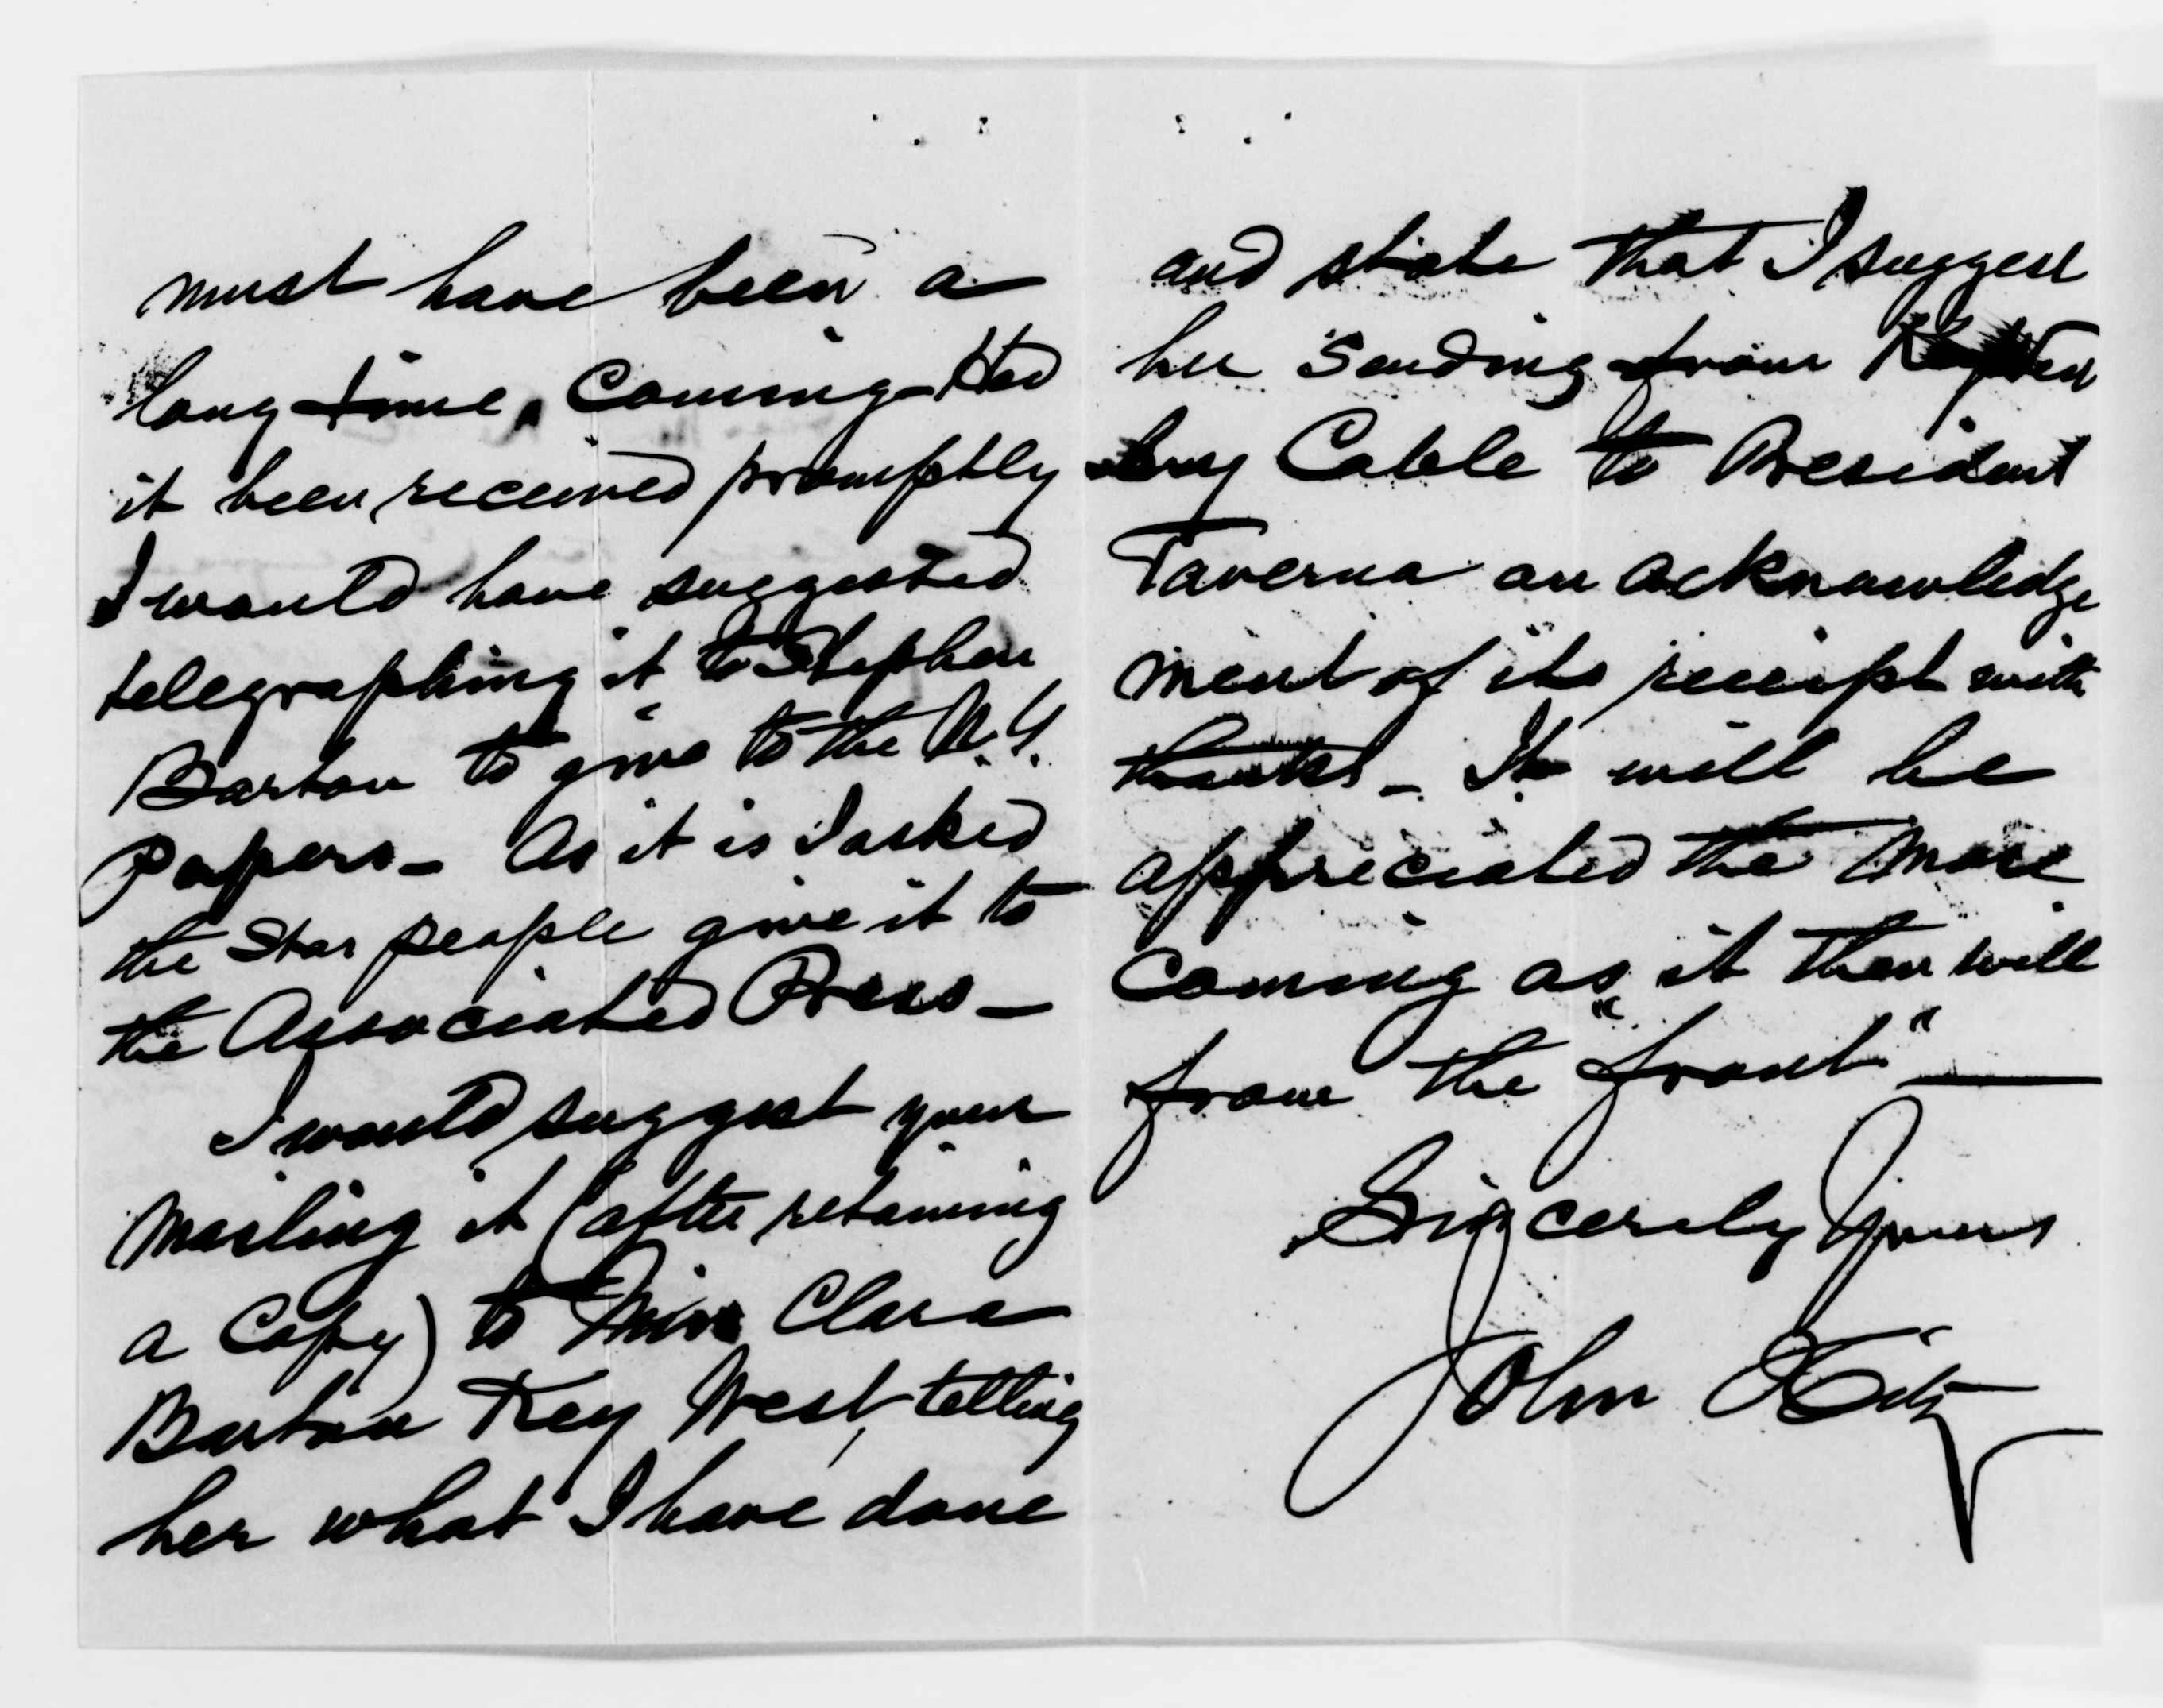 must have been a
long time coming - Had
it been received promptly
I would have suggested
telegraphing it to Stephen
Barton to give to the N.Y.
Papers - As it is I asked
the Star people give it to
the Associated Press -
I would suggest your
mailing it (after retaining
a Copy) to Miss Clara
Barton Key West, telling
her what I have done
and state that I suggest
her sending from Key West
by Cable to President
Taverna an acknowledge
ment of its receipt with
thanks - It will be
appreciated the more
coming as it then will
from the "front" -
Sincerely Yours
John